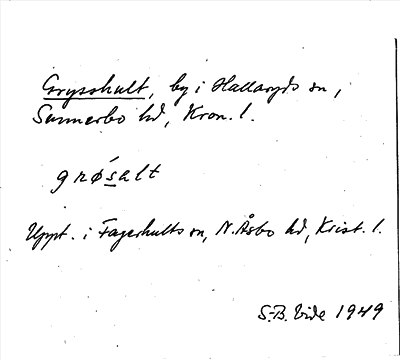 Grysshult, by i Hallaryds sn,
Sunnerbo hd, Kron. l.
grǿsalt
Uppt. i Fagerhults sn, N. Åsbo hd, Krist. l.
S.-B. Vide 1949